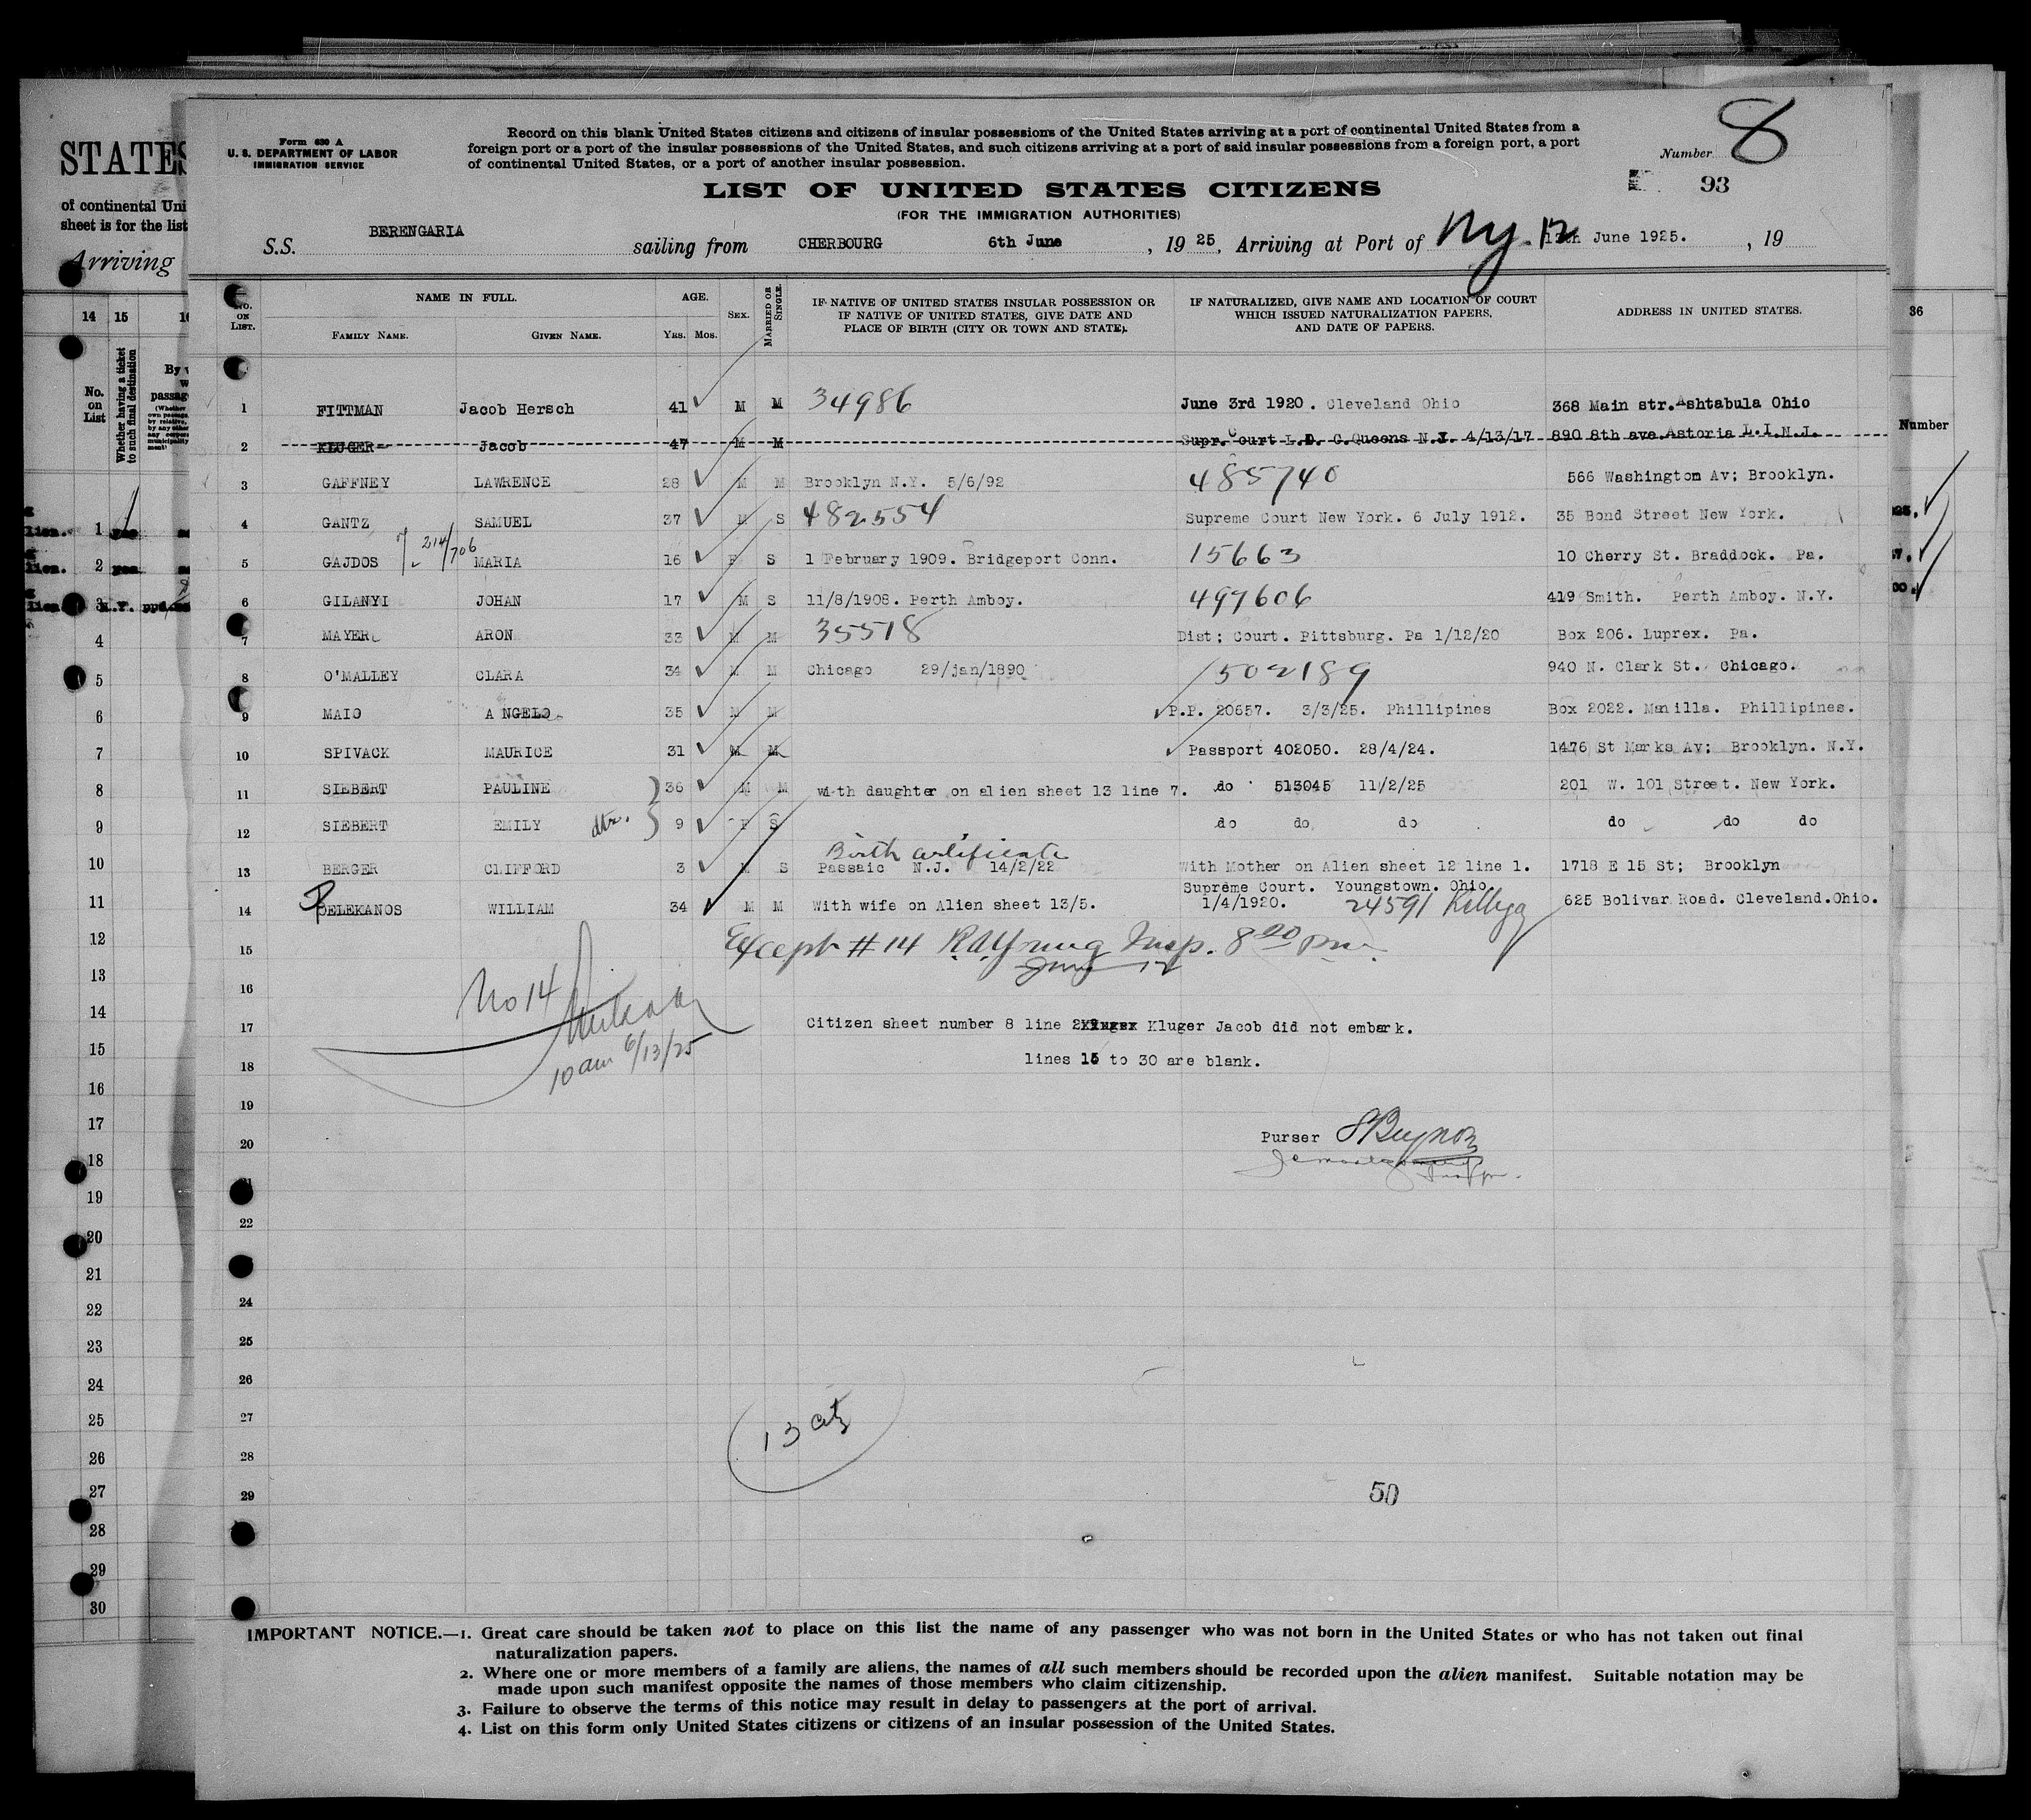 Form 630 A
U. S. DEPARTMENT OF LABOR
IMMIGRATION SERVICE
Record on this blank United States citizens and citizens of insular possessions of the United States arriving at a port of continental United States from a
foreign port or a port of the insular possessions of the United States, and such citizens arriving at a port of said insular possessions from a foreign port, a port
of continental United States, or a port of another insular possession.
Number 8
93
LIST OF UNITED STATES CITIZENS
(FOR THE IMMIGRATION AUTHORITIES)
S.S. BERENGARIA sailing from CHERBOURG 6th June, 1925, Arriving at Port of Ny. 12 June 1925. , 19
No. ON LIST. NAME IN FULL. AGE. SEX. MARRIED OR SINGLE. IF NATIVE OF UNITED STATES INSULAR POSSESSION OR IF NATIVE OF UNITED STATES, GIVE DATE AND PLACE OF BIRTH (CITY OR TOWN AND STATE). IF NATURALIZED, GIVE NAME AND LOCATION OF COURT WHICH ISSUED NATURALIZATION PAPERS, AND DATE OF PAPERS. ADDRESS IN UNITED STATES.
FAMILY NAME. GIVEN NAME. YRS. MOS.
1 FITTMAN Jacob Hersch 41 M M 34986 June 3rd 1920. Cleveland Ohio 368 Main str. Ashtabula Ohio
2 KLUGER Jacob 47 M M Supr. Court L.D. G.Queens N.Y. 4/13/17 890 8th ave.Astoria L.I.N.J.
3 GAFFNEY LAWRENCE 28 M M Brooklyn N.Y. 5/6/92 485740 566 Washington Av; Brooklyn.
4 GANTZ SAMUEL 37 M S 482554 Supreme Court New York. 6 July 1912. 35 Bond Street New York.
5 GAJDOS 214/706 MARIA 16 F S 1 February 1909. Bridgeport Conn. 15663 10 Cherry St. Braddock. Pa.
6 GILANYI JOHAN 17 M S 11/8/1908. Perth Amboy. 497606 419 Smith. Perth Amboy. N.Y.
7 MAYER ARON 33 M M 35518 Dist; Court. Pittsburg. Pa 1/12/20 Box 206. Luprex. Pa.
8 O'MALLEY CLARA 34 M M Chicago 29/jan/1890 502189 940 N. Clark St. Chicago.
9 MAIO ANGELO 35 M M P.P. 20657. 3/3/25. Phillipines Box 2022. Manilla. Phillipines.
10 SPIVACK MAURICE 31 M M Passport 402050. 28/4/24. 1476 St Marks Av; Brooklyn. N.Y.
11 SIEBERT PAULINE 36 M M with daughter on alien sheet 13 line 7. do 513045 11/2/25 201 W. 101 Street. New York.
12 SIEBERT EMILY dtr. 9 F S do do do do do do
Birth certificate
13 BERGER CLIFFORD 3 M S Passaic N.J. 14/2/22 With Mother on Alien sheet 12 line 1. 1718 E 15 St; Brooklyn
Supreme Court. Youngstown. Ohio.
14 PELEKANOS WILLIAM 34 M M With wife on Alien sheet 13/5. 1/4/1920. 24591 625 Bolivar Road. Cleveland.Ohio.
15 Except #14 R.A.Young Insp. 8 00 pm.
June 12
16 No 14
17 Citizen sheet number 8 line 2 Kluger Jacob did not embark.
10 am 6/13/25
18 lines 15 to 30 are blank.
19
20 Purser
21
22
24
25
26
27
13 cits
28
29
50
IMPORTANT NOTICE.—1. Great care should be taken not to place on this list the name of any passenger who was not born in the United States or who has not taken out final
naturalization papers.
2. Where one or more members of a family are aliens, the names of all such members should be recorded upon the alien manifest. Suitable notation may be
made upon such manifest opposite the names of those members who claim citizenship.
3. Failure to observe the terms of this notice may result in delay to passengers at the port of arrival.
4. List on this form only United States citizens or citizens of an insular possession of the United States.
STATES
of continental Uni
sheet is for the list
Arriving
14 15
No. on List
Whether having a ticket to such final destination
By w
passag
1 yes
2 yes
3 N.Y.
4
5
6
7
8
9
10
11
12
13
14
15
16
17
18
19
20
21
22
23
24
25
26
27
28
29
30
36
Number